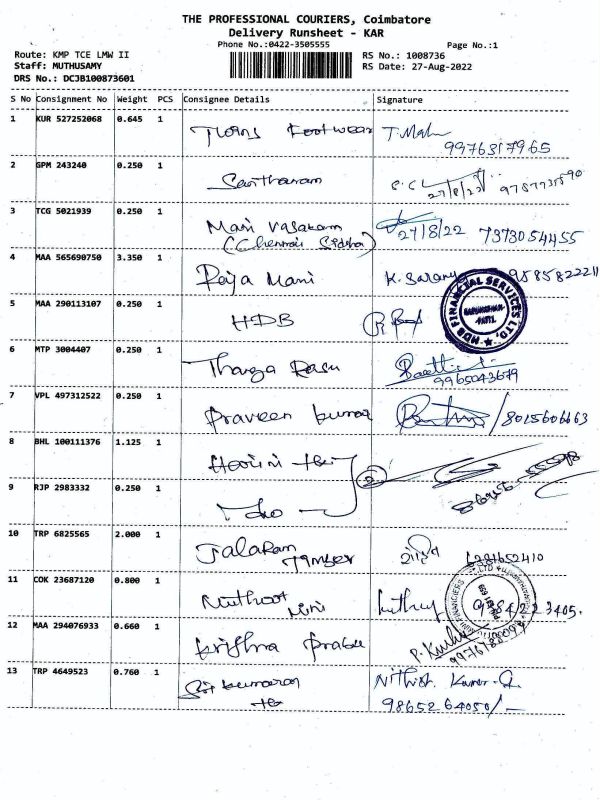 THE PROFESSIONAL COURIERS, Coimbatore
Delivery Runsheet - KAR
Phone No.:0422-3505555
Page No.:1
Route: KMP TCE LMW II
RS No.: 1008736
Staff: MUTHUSAMY
RS Date: 27-Aug-2022
DRS No.: DCJB100873601
S No Consignment No Weight PCS Consignee Details Signature
1 KUR 527252068 0.645 1 Footwear T. Mah
9976317965
2 GPM 243240 0.250 1 Santharam
27/8/22
3 TCG 5021939 0.250 1 Mani Vasakam 27/8/22 7373054455
(Chennai
4 MAA 565690750 3.350 1 Raja Mani K. Sarany 9585822211
5 MAA 290113107 0.250 1 HDB
HDB FINANCIAL SERVICES LTD.
6 MTP 3004407 0.250 1 Thanga Rasu
9965043679
7 VPL 497312522 0.250 1 Praveen kumar /8015606663
8 BHL 100111376 1.125 1 Harini
2
9 RJP 2983332 0.250 1
10 TRP 6825565 2.000 1 Jalaram
Timber
11 COK 23687120 0.800 1 Muthoot
Mini
12 MAA 294076933 0.660 1 Krishna Prabu
13 TRP 4649523 0.760 1 Sri kumaran Nithish Kumar.G
9865264050/-